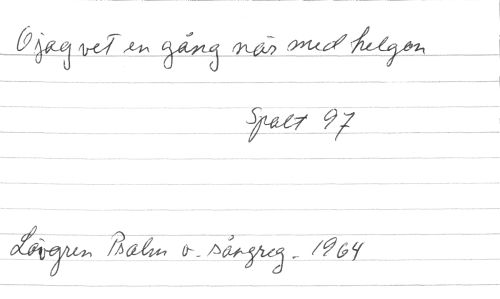 O jag vet en gång när med helgon
Spalt 97
Lövgren Psalm o. sångreg. 1964